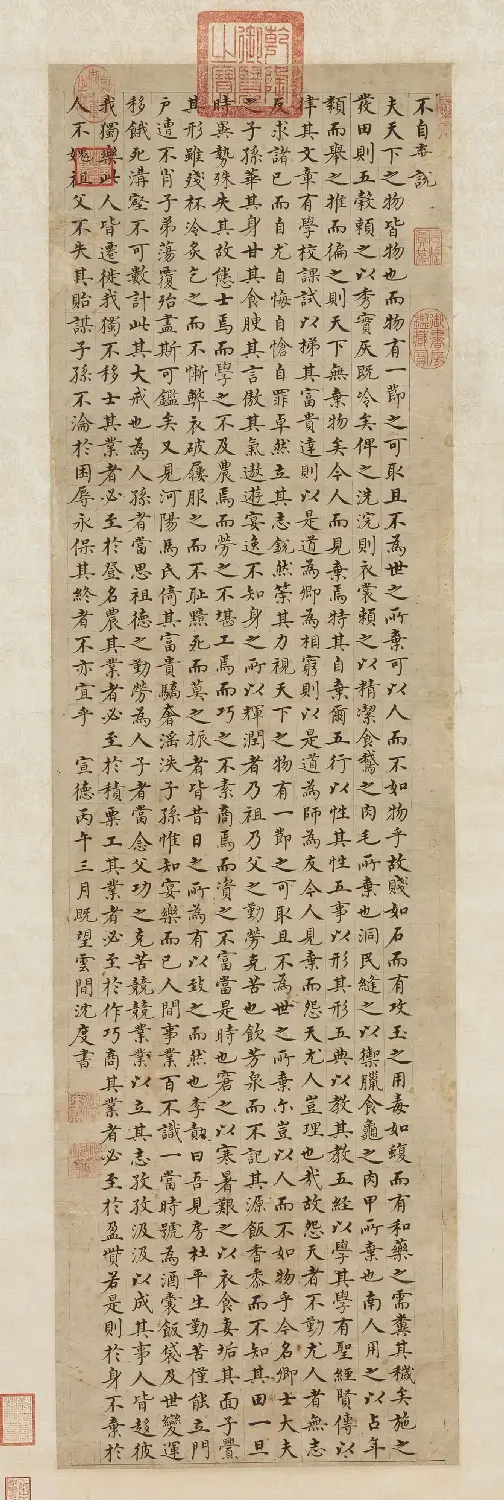 不自弃說
夫天下之物皆物也而物有一節之可取且不為世之所棄可以人而不如物乎故賤如石而有攻玉之用毒如蝮而有和藥之需糞其穢矣施之
發田則五穀賴之以秀實灰既冷矣俾之洗浣則衣裳賴之以精潔食鵞之肉毛所棄也洞民縫之以禦臘食龜之肉甲所棄也南人用之以占年
類而舉之推而徧之則天下無棄物矣今人而見棄焉特其自棄爾五行以性其性五事以形其形五典以教其教五經以學其學有聖經賢傳以
律其文章有學校課試以梯其富貴達則以是道為卿為相窮則以是道為師為友今人見棄而怨天尤人豈理也我故怨天者不勤尤人者無志
反求諸己而自尤自悔自愴自罪卓然立其志銳然策其力視天下之物有一節之可取且不為世之所棄尓豈以人而不如物乎今名卿士大夫
之子孫華其身甘其食腴其言傲其氣遨遊宴逸不知身之所以輝潤者乃祖乃父之勤勞克苦也飲芳泉而不記其源飯香黍而不知其田一旦
時異勢殊失其故態士焉而學之不及農焉而勞之不堪工焉而巧之不素商焉而資之不富當是時也窘之以寒暑艱之以衣食妻垢其面子釁
其形雖殘杯冷炙乞之而不慚弊衣破屨服之而不耻黯死而莫之振者皆昔日之所為有以致之而然也李勣曰吾見房杜平生勤苦僅能立門
戶遭不肖子弟蕩覆殆盡斯可鑑矣又見河陽馬氏倚其富貴驕奢滛泆子孫惟知宴樂而已人間事業百不識一當時號為酒囊飯袋及世變運
移餓死溝壑不可數計此其大戒也為人孫者當思祖德之勤勞為人子者當念父功之克苦兢兢業業以立其志孜孜汲汲以成其事人皆趍彼
我獨樂此人皆遷徙我獨不移士其業者必至於登名農其業者必至於積粟工其業者必至於作巧商其業者必至於盈貲若是則於身不棄於
人不媿祖父不失其貽謀子孫不淪於困辱永保其終者不亦宜乎 宣德丙午三月既望雲間沈度書